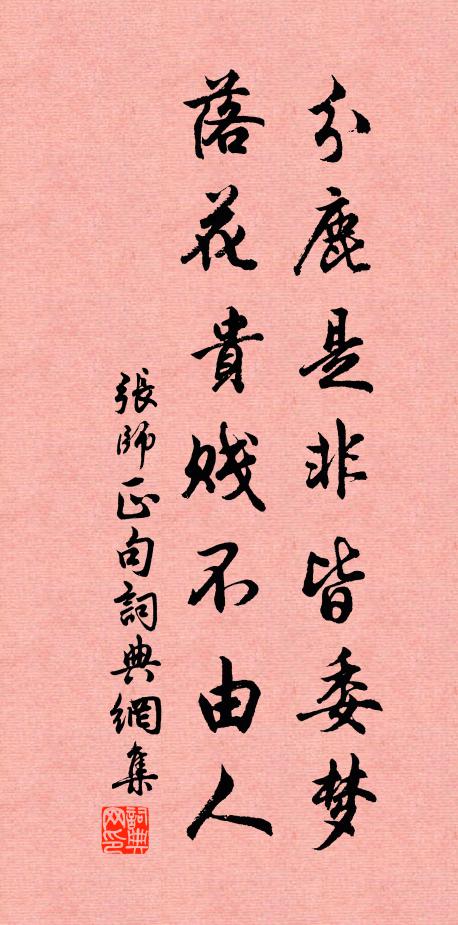 分鹿是非皆委梦
落花貴賤不由人
張師正句詞典網集
詞典网印